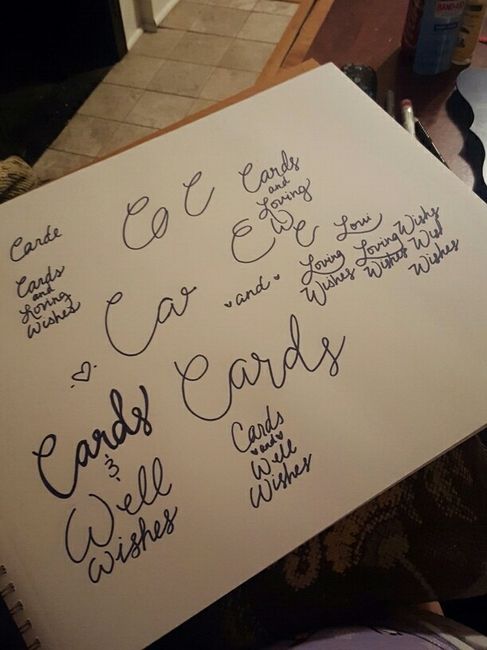 Cards
and
Loving
C C
E W E
Lovi
Loving
Wishes
Loving
Wishes
Wishes
Well
Wishes
Carde
Cards
and
Loving
Wishes
and
Car
Cards
Cards
&
Well
Wishes
Cards
and
Well
Wishes